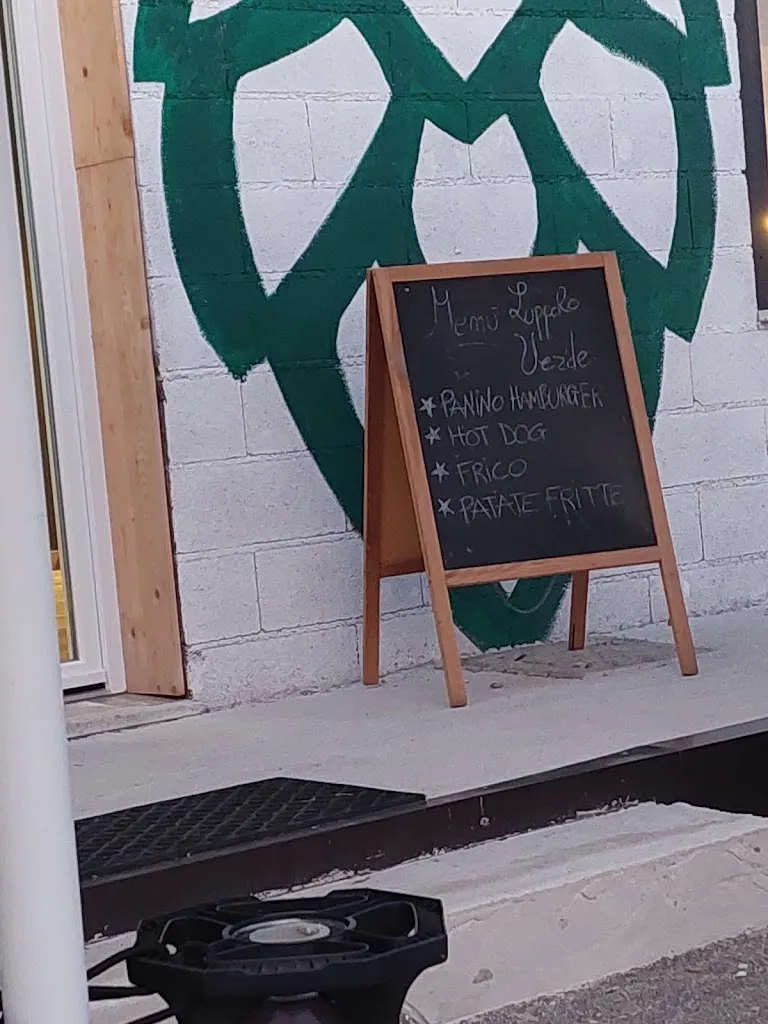 Menù Luppolo
Verde
★ PANINO HAMBURGER
★ HOT DOG
★ FRICO
★ PATATE FRITTE